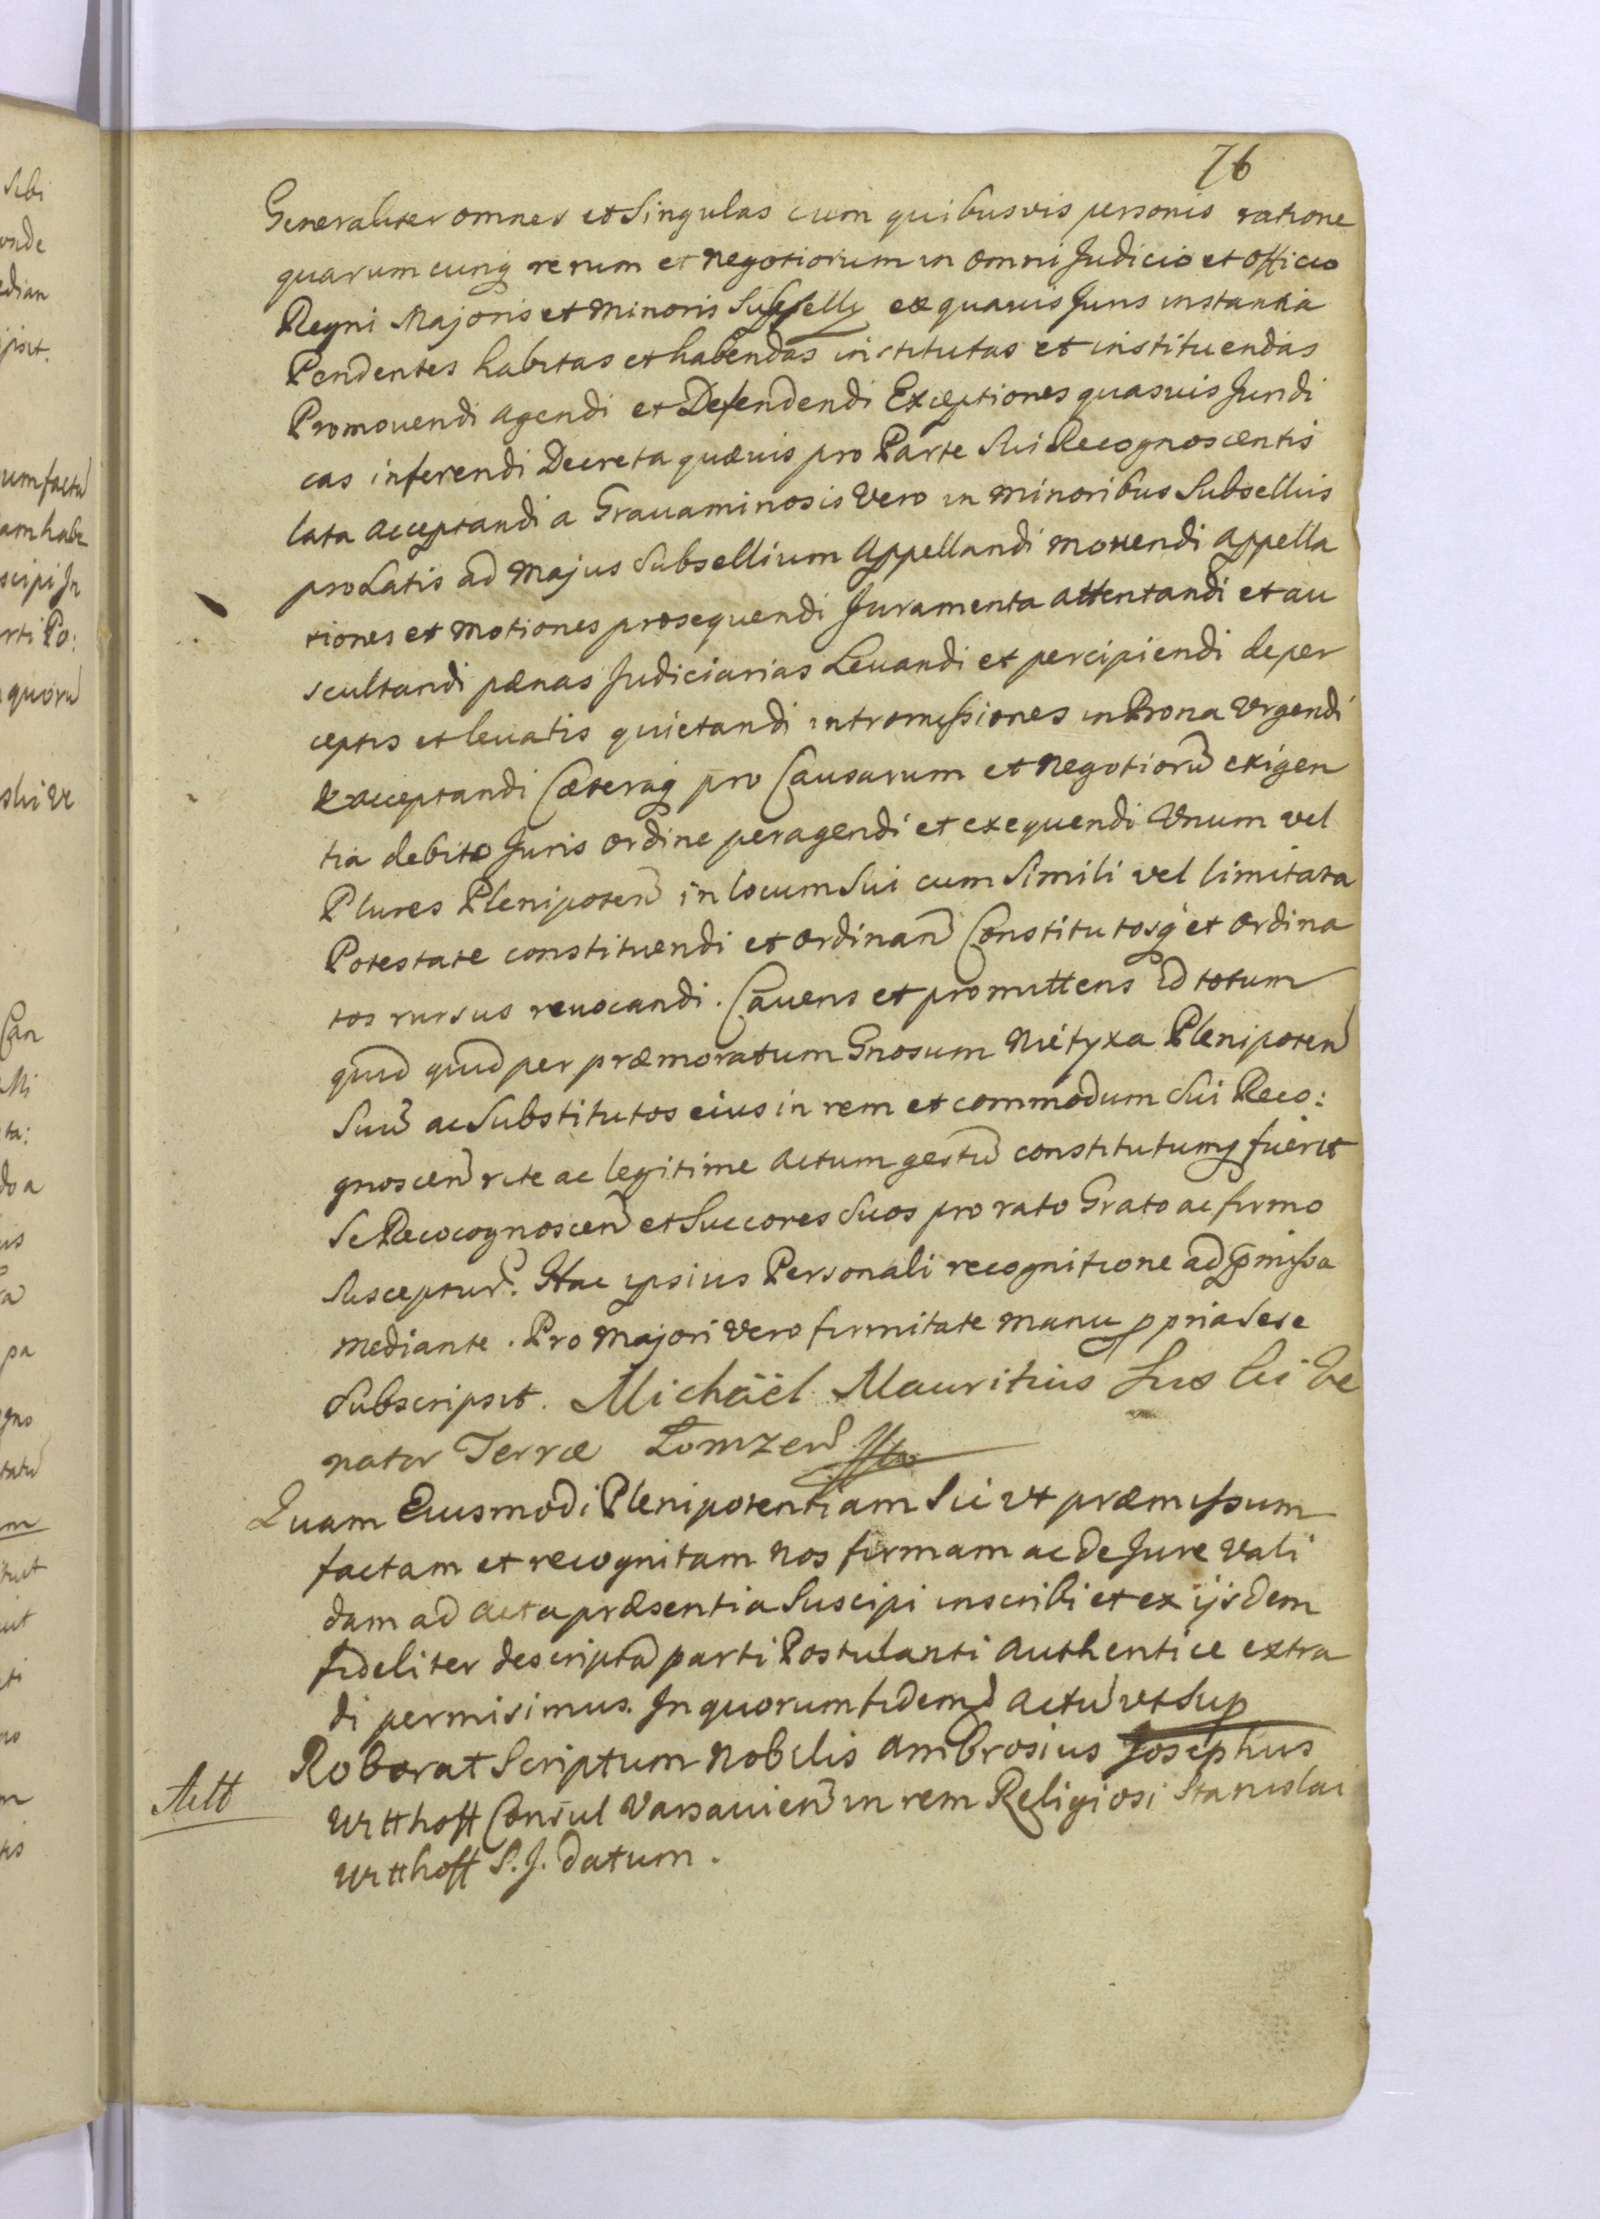 76
Generaliter omnes et Singulas cum quibusvis personis ratione
quarumcunq rerum et negotiorum in omni Judicio et officio
Regni Majoris et minoris Subselly ex quavis Juris instantia
Pendentes habitas et habendas institutas et instituendas
Promouendi agendi et Defendendi Exceptiones quasuis Juridi
cas inferendi Decreta quæuis pro Parte Sui Recognoscentis
lata acceptandi a Grauaminosis Vero in minoribus Subselliis
proLatis ad Majus Subsellium Appellandi mouendi appella
tiones et motiones prosequendi Juramenta attentandi et au
scultandi pænas Judiciarias Leuandi et percipiendi de per
ceptis et leuatis quietandi intromissiones in Bona Vrgendi
Exacceptandi Cæteraq pro Causarum et negotioru exigen
tia debito Juris ordine peragendi et exequendi Vnum vel
Plures Plenipoten in locum Sui cum Simili vel limitata
Potestate constituendi et ordinan Constitutosq et ordina
tos rursus reuocandi. Cauens et promittens id totum
quid quid per præmoratum Gnosum Nietyxa Plenipoten
Suu ac Substitutos eius in rem et commodum Sui Reco:
gnoscen rite ac legitime actum gestu constitutumq fuerit
Se Recocognoscen et Succores Suos pro rato Grato ac firmo
Susceptur. Hac ipsius Personali recognitione ad pmissa
mediante. Pro majori Vero firmitate manu ppria Sese
Subscripsit. Michäel Mauritius Ve
nator Terræ Łomzen
Quam Eiusmodi Plenipotentiam Sic vt præmissum
factam et recognitam nos firmam ac de Jure Vali
dam ad acta præsentia Suscipi inscribi et ex ijsdem
fideliter descripta parti Postulanti authentice extra
di permisimus. In quorum fidem actu vt Sup
Roborat Scriptum nobilis ambrosius Josephus
Witthoff Consul Varsauien in rem Religiosi Stanislai
Witthoff S.J. datum.